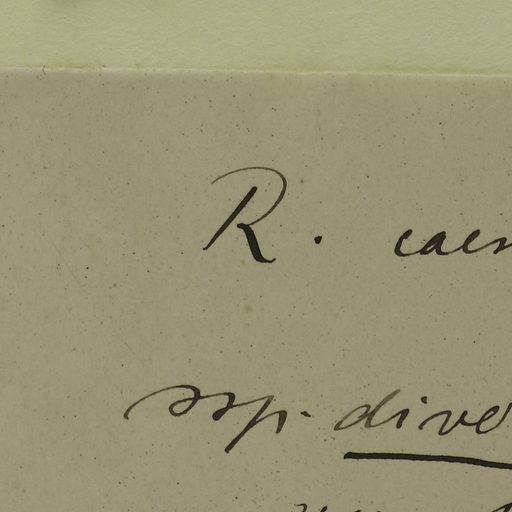 R. caes
ssp. dive